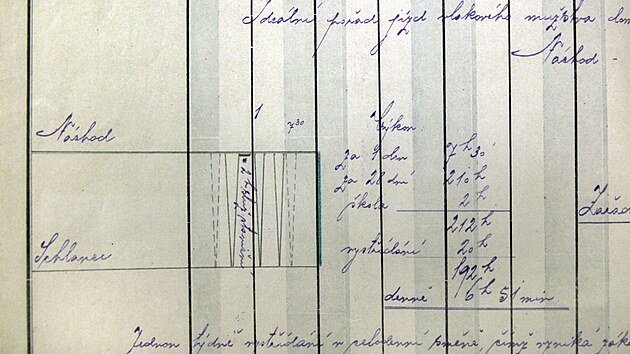 Ideální pořad jízd vlakového mužstva dom
Náchod -
1
7³⁰
Náchod
Výkon:
za 1 den 7h 30'
za 28 dní 210h
škola 2h
212h
vystřídání 20h
192h
denně 6h 51 min
Jednou týdně vystřídání v celodenní směně, čímž vzniká